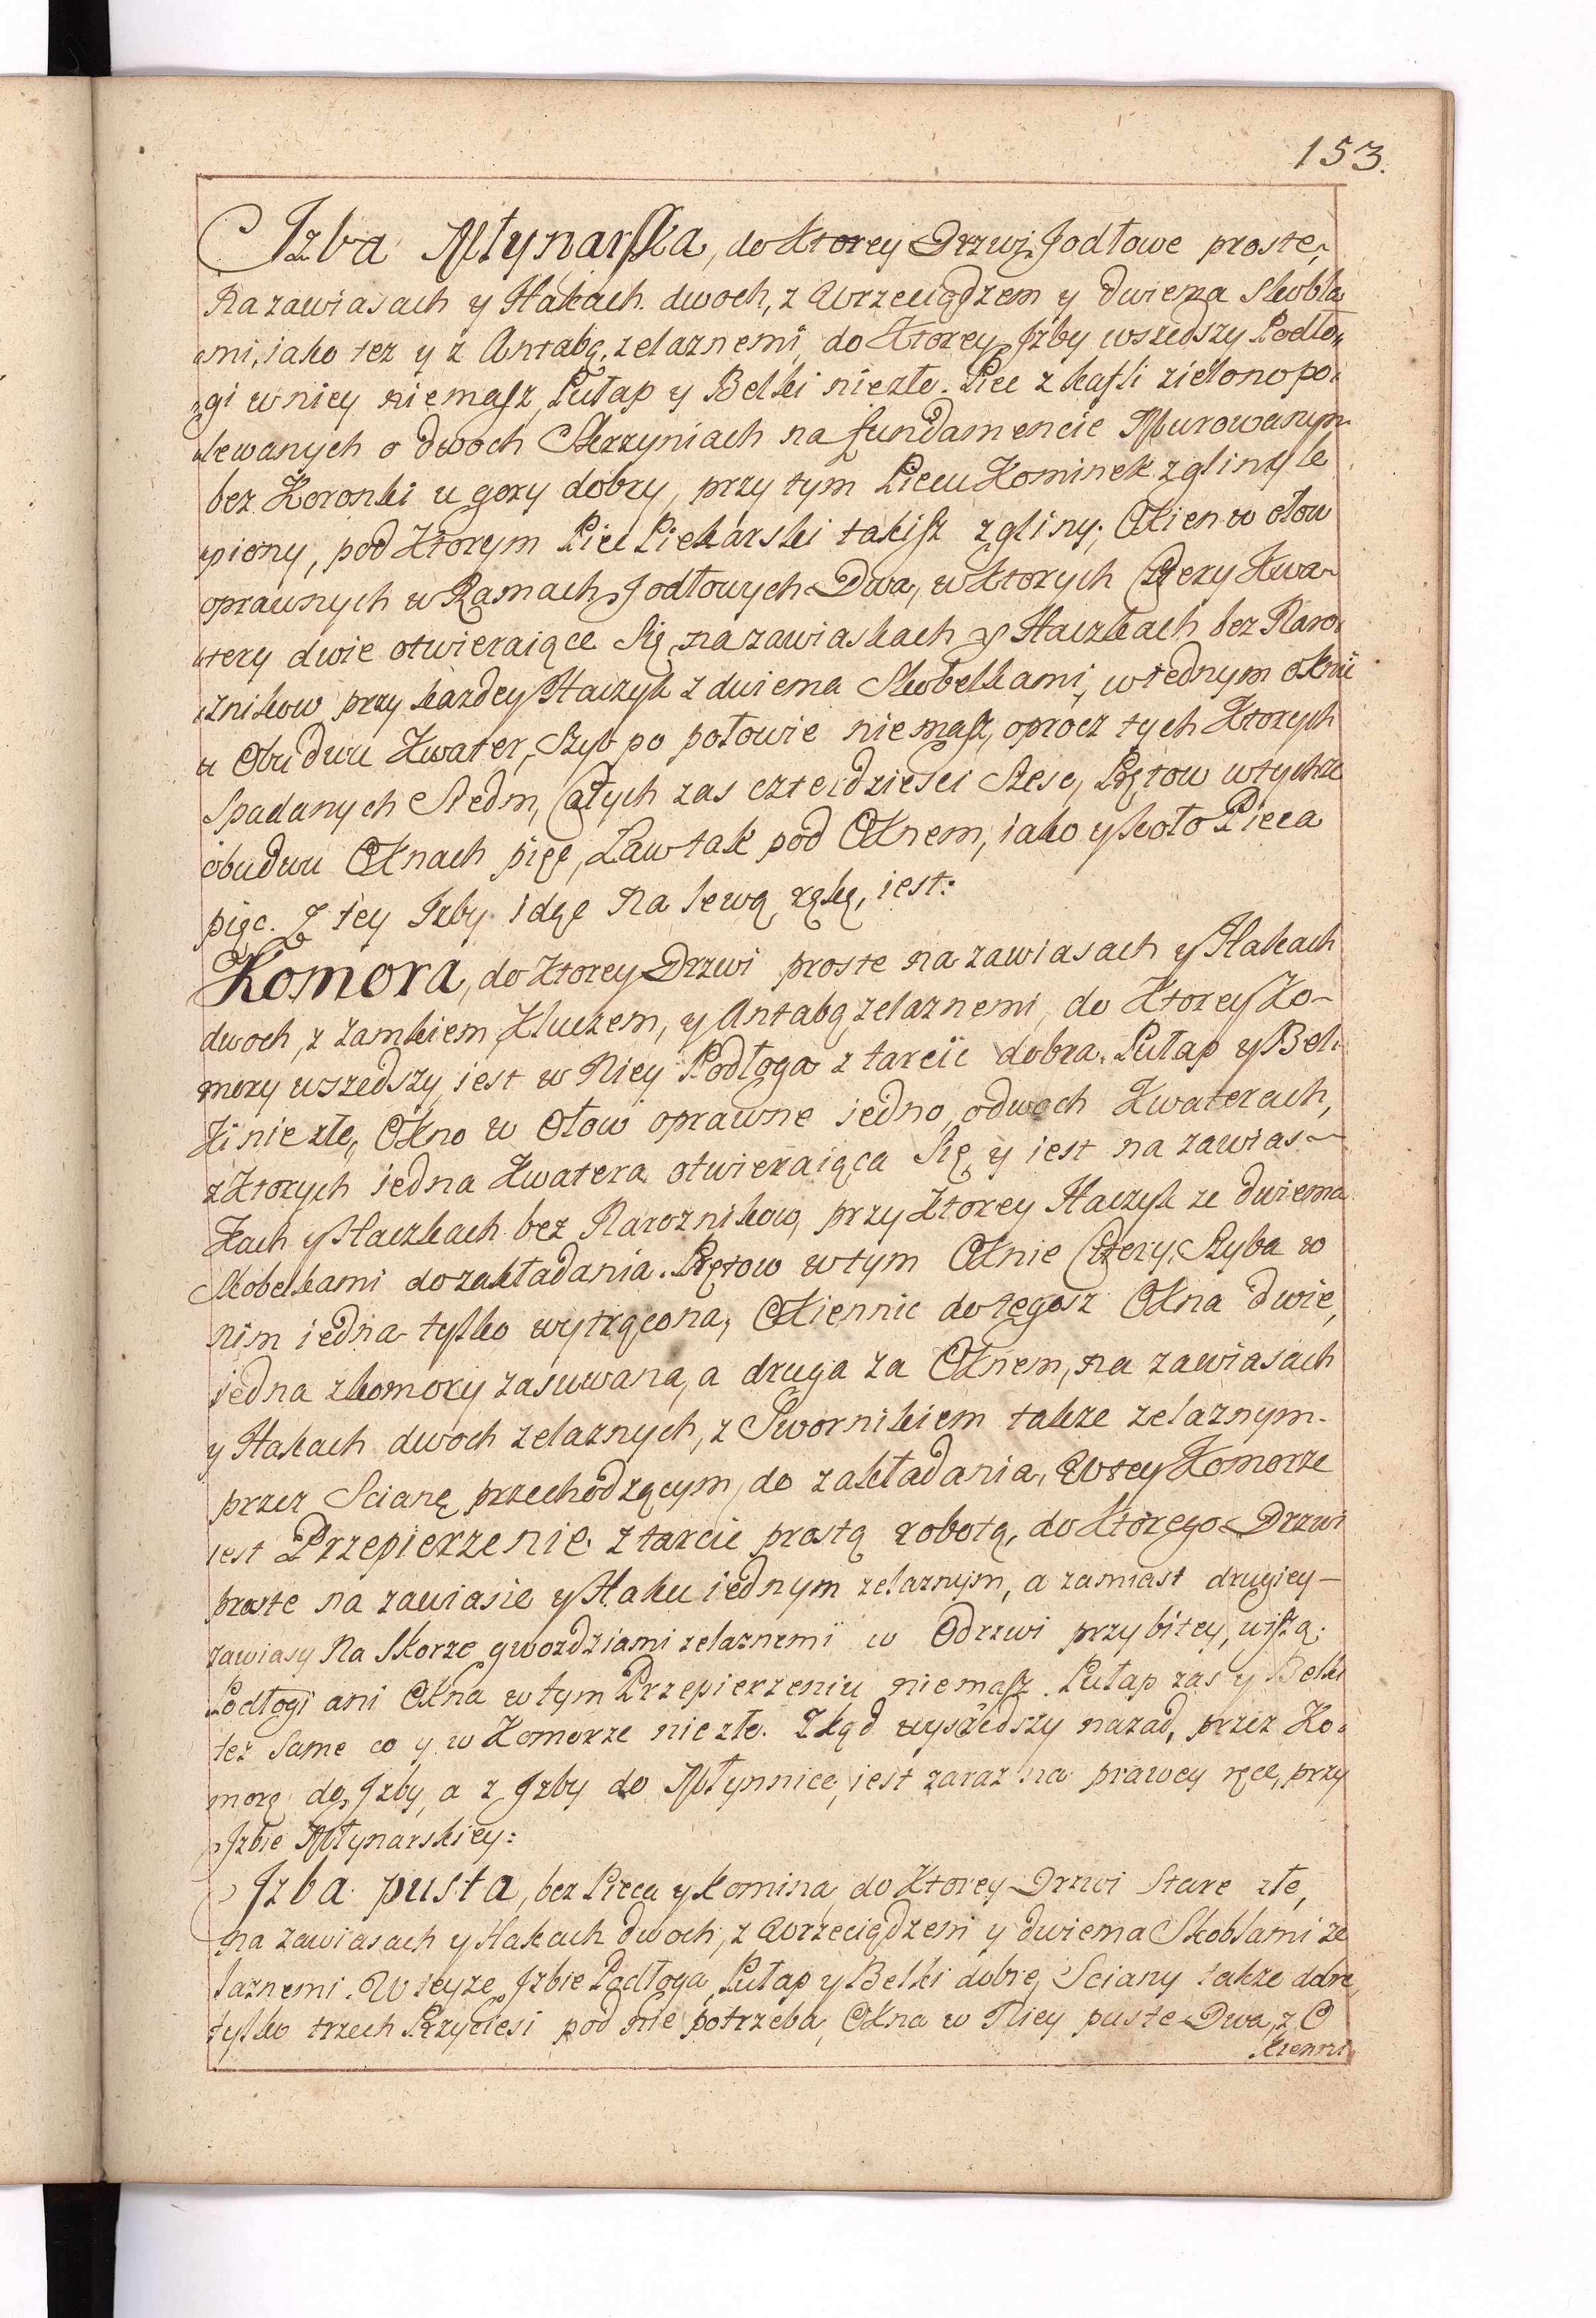 153.
Izba Młynarska, do Ktorey Drzwi Jodłowe proste,
Na zawiasach y Hakach dwoch, z Wrzeciądzem y dwiema Skobla
mi, iako tez y z Antabą zelaznemi, do Ktorey Izby wszedszy Podło„
„gi w niey niemasz, Pułap y Belki niezłe. Piec z kafli zielono po„
„lewanych o dwoch Skrzyniach na fundamencie Murowanym
bez Koronki u gory dobry, przy tym Piecu Kominek z gliny le
„piony, pod Ktorym Piec Piekarski takisz z gliny; Okien w ołow
oprawnych w Ramach Jodłowych Dwa, w Ktorych Cztery Kwa-
„tery dwie otwieraiące Się na zawiaskach y Haczkach bez Naro„
„znikow przy kazdey Haczyk z dwiema Skobelkami, w iednym oknie
u Obu dwu Kwater, Szyb po połowie niemasz, oprocz tych Ktorych
Spadanych Siedm, Całych zas czterdziesci Szesc, Prętow w tychze
obudwu Oknach pięc, Law tak pod Oknem, iako y koło Pieca
pięc. Z tey Izby idąc Na lewą rękę, iest:
Komora, do Ktorey Drzwi proste na zawiasach y Hakach
dwoch, z zamkiem Kluczem, y Antabą zelaznemi, do Ktorey Ko-
mory wszedszy, iest w Niey Podłoga z tarcic dobra. Pułap y Bel„
Ki niezłe, Okno w Ołow oprawne iedno, o dwoch Kwaterach,
z Ktorych iedna Kwatera otwieraiąca Się y iest na zawias-
Kach y Haczkach bez Naroznikow, przy Ktorey Haczyk ze dwiema
Skobelkami do zakładania. Prętow w tym Oknie Cztery, Szyba w
nim iedna tylko wytrącona, Okiennic do tegosz Okna dwie,
iedna z komory zasuwana, a druga za Oknem, na zawiasach
y Hakach dwoch zelaznych, z Swornikiem takze zelaznym
przez Scianę przechodzącym, do zakładania. W tey Komorze
iest Przepierzenie z tarcic prostą robotą, do Ktorego Drzwi
proste na zawiasie y Haku iednym zelaznym, a zamiast drugiey-
zawiasy Na Skorze gwozdziami zelaznemi w Odrzwi przybitey, wiszą.
Podłogi ani Okna w tym Przepierzeniu niemasz. Pułap zas y Belki
tez Same co y w Komorze niezłe. Zkąd wyszedszy nazad, przez Ko„
morę do Izby, a z Izby do Młynnice, iest zaraz na prawey ręce, przy
Izbie Młynarskiey:
Izba pusta, bez Pieca y Komina, do Ktorey Drzwi Stare złe,
na zawiasach y Hakach dwoch, z Wrzeciądzem y dwiema Skoblami ze
laznemi. W teyze Izbie Podłoga, Pułap y Belki dobre, Sciany takze dobre,
tylko trzech Przyciesi pod nie potrzeba, Okna w Niey puste Dwa, z O